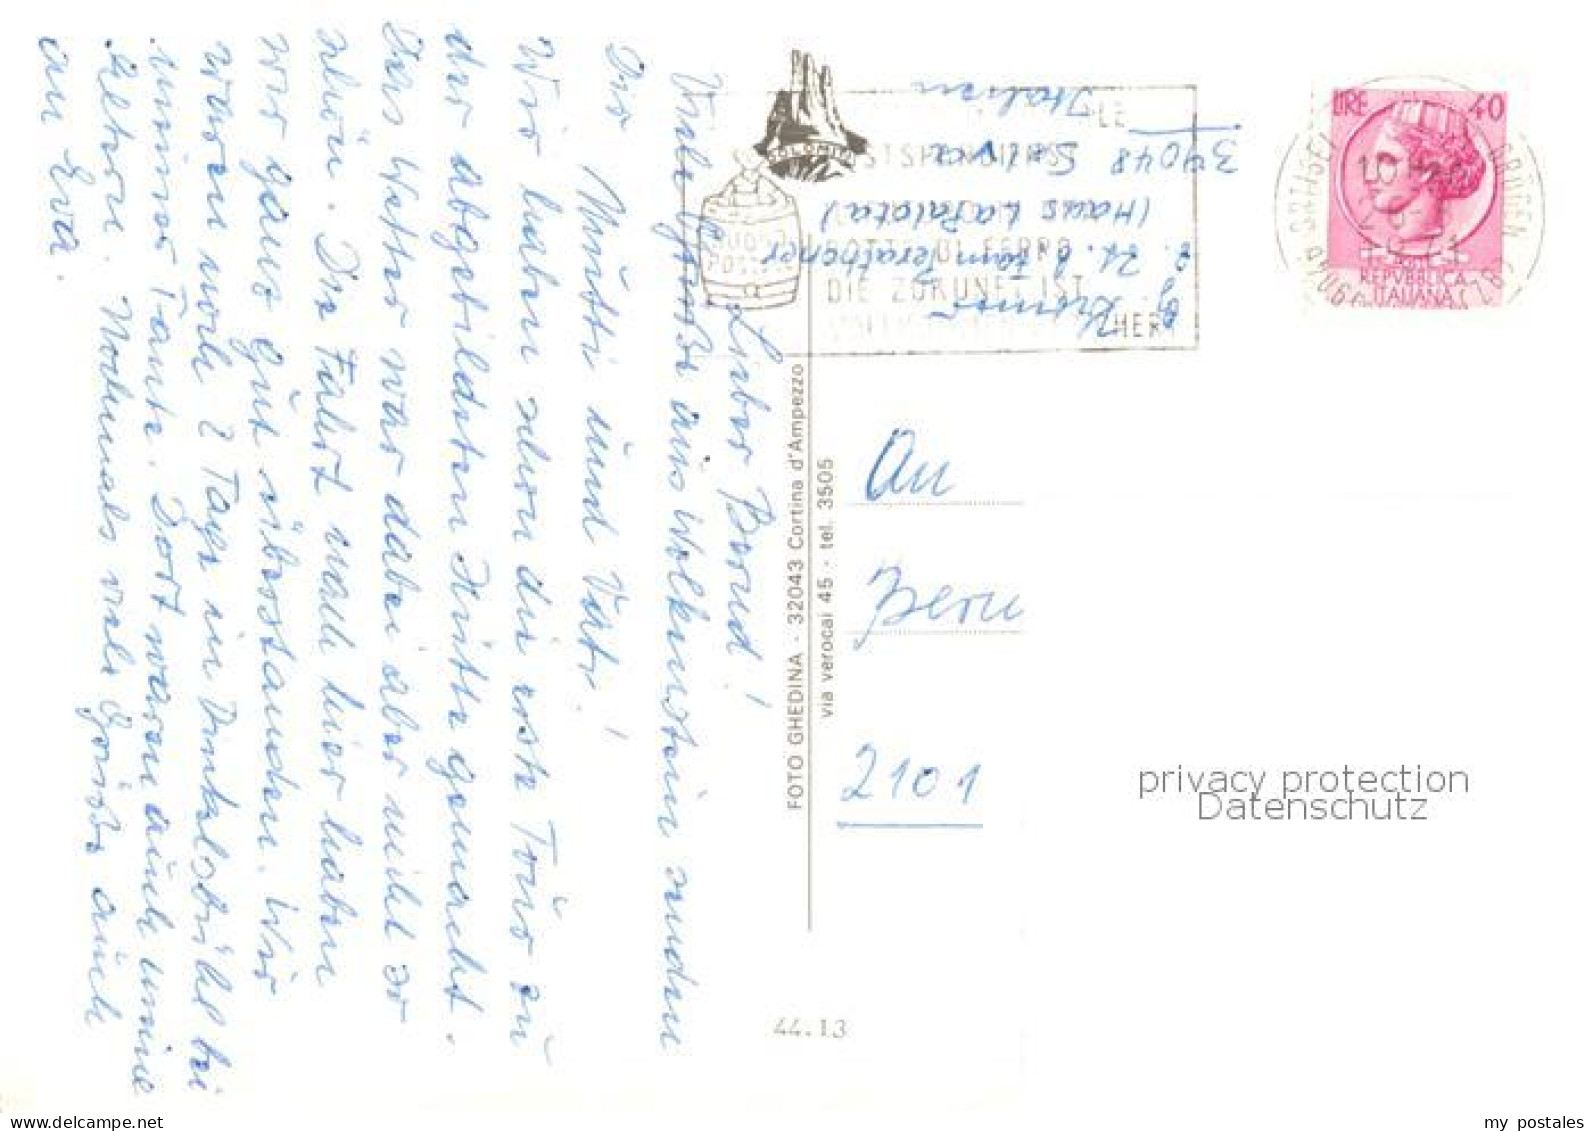 Lieber Bernd!
Viele Grüße aus Wolkenstein senden
Dir Mutti und Vati!
Wir haben schon die erste Tour zu
der abgebildeten Hütte gemacht.
Das Wetter war dabei aber nicht so
schön. Die Fahrt nach hier haben
wir ganz gut überstanden. Wir
waren noch 2 Tage in Dinkelsbühl bei
unserer Tante. Dort waren auch meine
Eltern. Nochmals viele Grüße auch
an Eva.
FOTO GHEDINA - 32043 Cortina d'Ampezzo
via verocai 45 - tel. 3505
44.13
Kremer
(Haus La Palota)
39048 Selva
Italien
DOLOMITI
DIE ZUKUNFT IST
LIRE 40
REPVBBLICA
ITALIANA
An
Bern
2101
privacy protection
Datenschutz
my postales